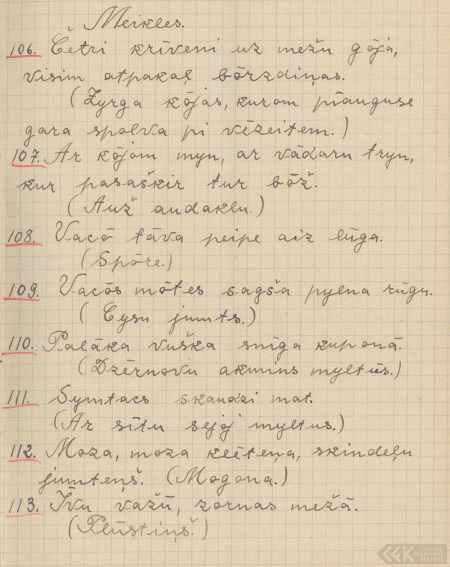 Meikles.
106. Četri kriveni uz mežu gōjā,
visim atpakaļ bōrzdiņas.
(Zyrga kōjas, kurom pīauguse
gara spolva pi vēzeitem.)
107. Ar kōjom myn, ar vādaru tryn,
kur pasašķir tur bōž.
(Auž audaklu.)
108. Vacō tāva peipe aiz lūga.
(Spōre.)
109. Vacōs mōtes sagša pylna rūgu.
(Cysu jumts.)
110. Palāka vuška snīga kuponā.
(Dzērnovu akmiņs myltūs.)
111. Symtacs skaudzi mat.
(Ar sītu sejoj myltus.)
112. Moza, moza klēteņa, skindeļu
jumteņš. (Mogona.)
113. Īvu važū, zornas mežā.
(Plūstiņš.)